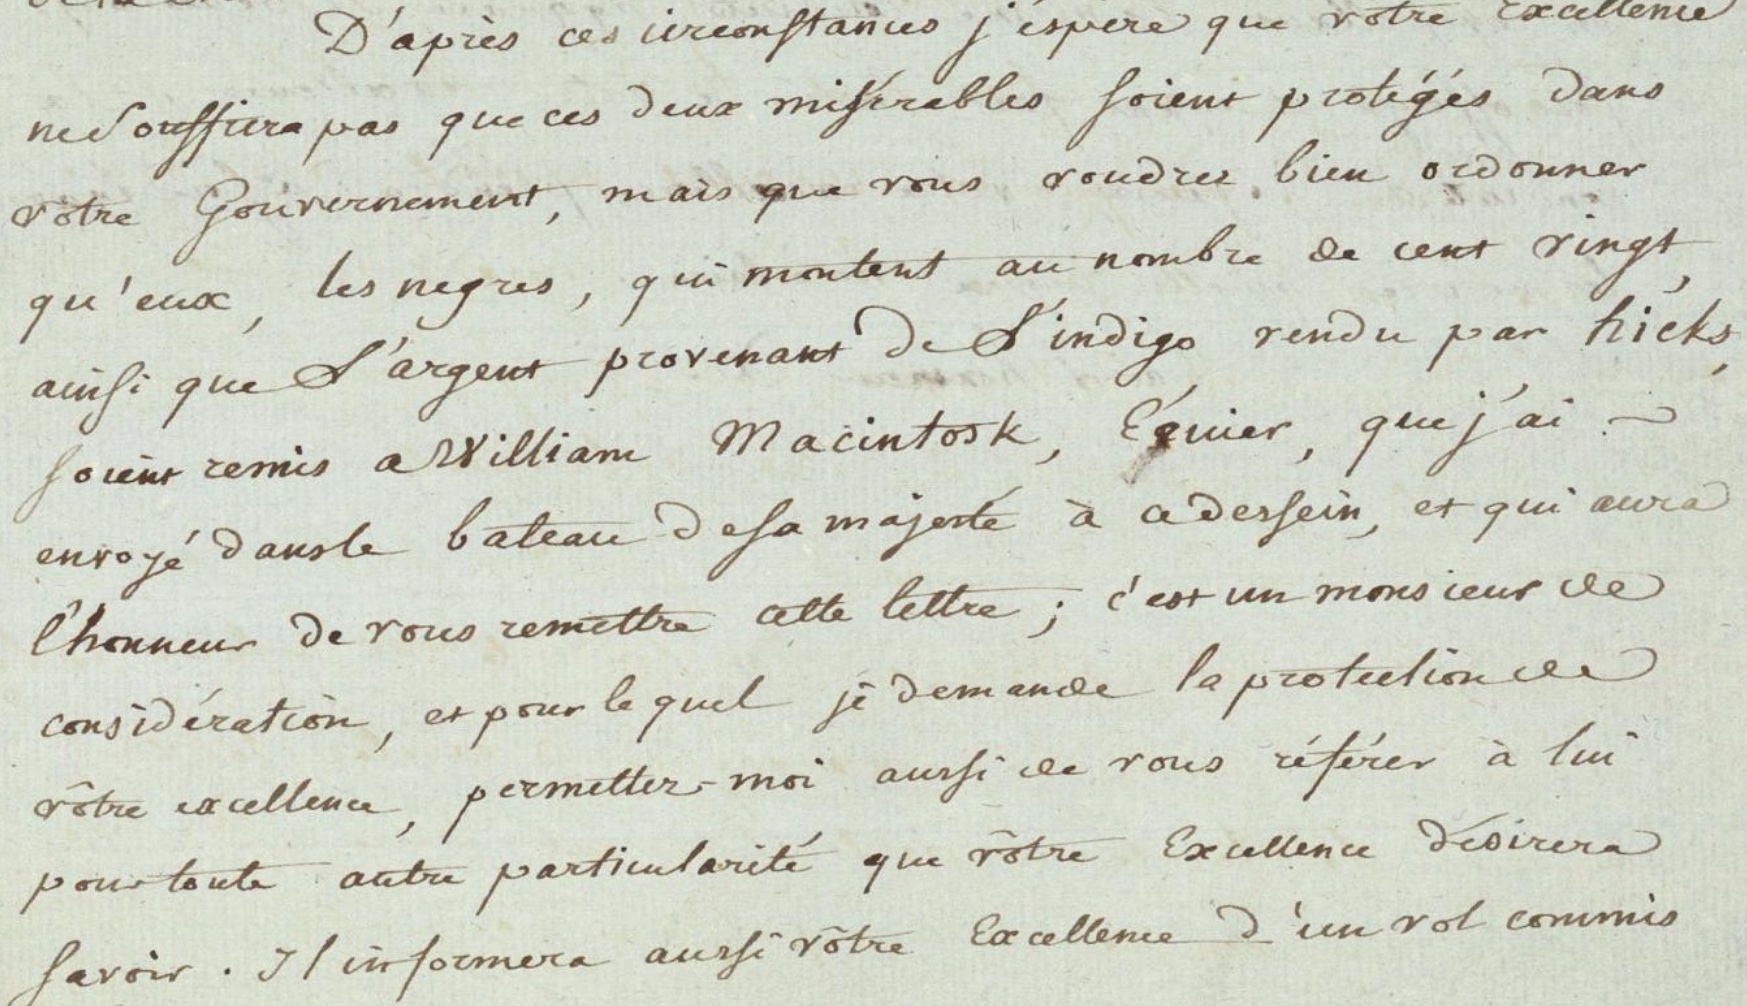 D'après ces circonstances j'éspere que vôtre Excellence
ne Souffrira pas que ces deux misérables soient protégés dans
vôtre Gouvernement, mais que vous voudrez bien ordonner
qu'eux, les negres, qui montent au nombre de cent vingt,
ainsi que L'argent provenant de L'indigo vendu par hicks,
soient remis a William Macintosk, Ecuier, que j'ai ~
envoyé dans le bateau de sa majesté à ce dessein, et qui aura
l'honneur de vous remettre cette lettre ; c'est un monsieur de
considération, et pour le quel je demande la protection de
vôtre excellence, permettez-moi aussi de vous référer à lui
pour toute autre particularité que vôtre Excellence désirera
savoir. Il informera aussi vôtre Excellence d'un vol commis